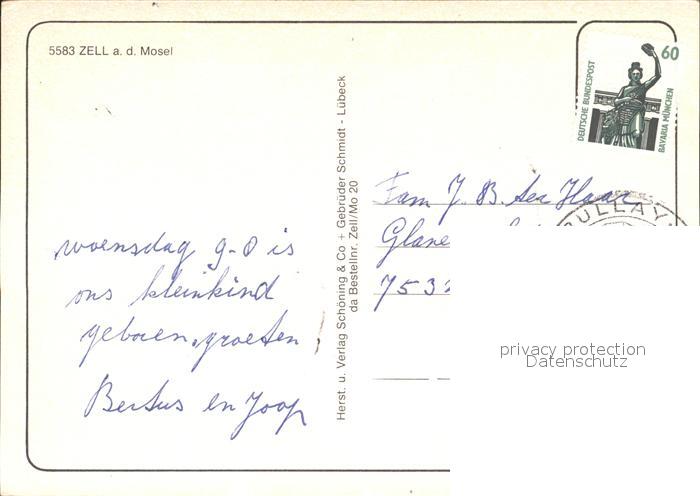 5583 ZELL a. d. Mosel
woensdag 9-8 is
ons kleinkind
geboren, groeten
Bertus en Joop
Herst. u. Verlag Schöning & Co + Gebrüder Schmidt - Lübeck
da Bestellnr. Zell/Mo 20
DEUTSCHE BUNDESPOST
60
BAVARIA MÜNCHEN
BULLAY
Fam J. B. ter Haar
Glane
753
privacy protection
Datenschutz